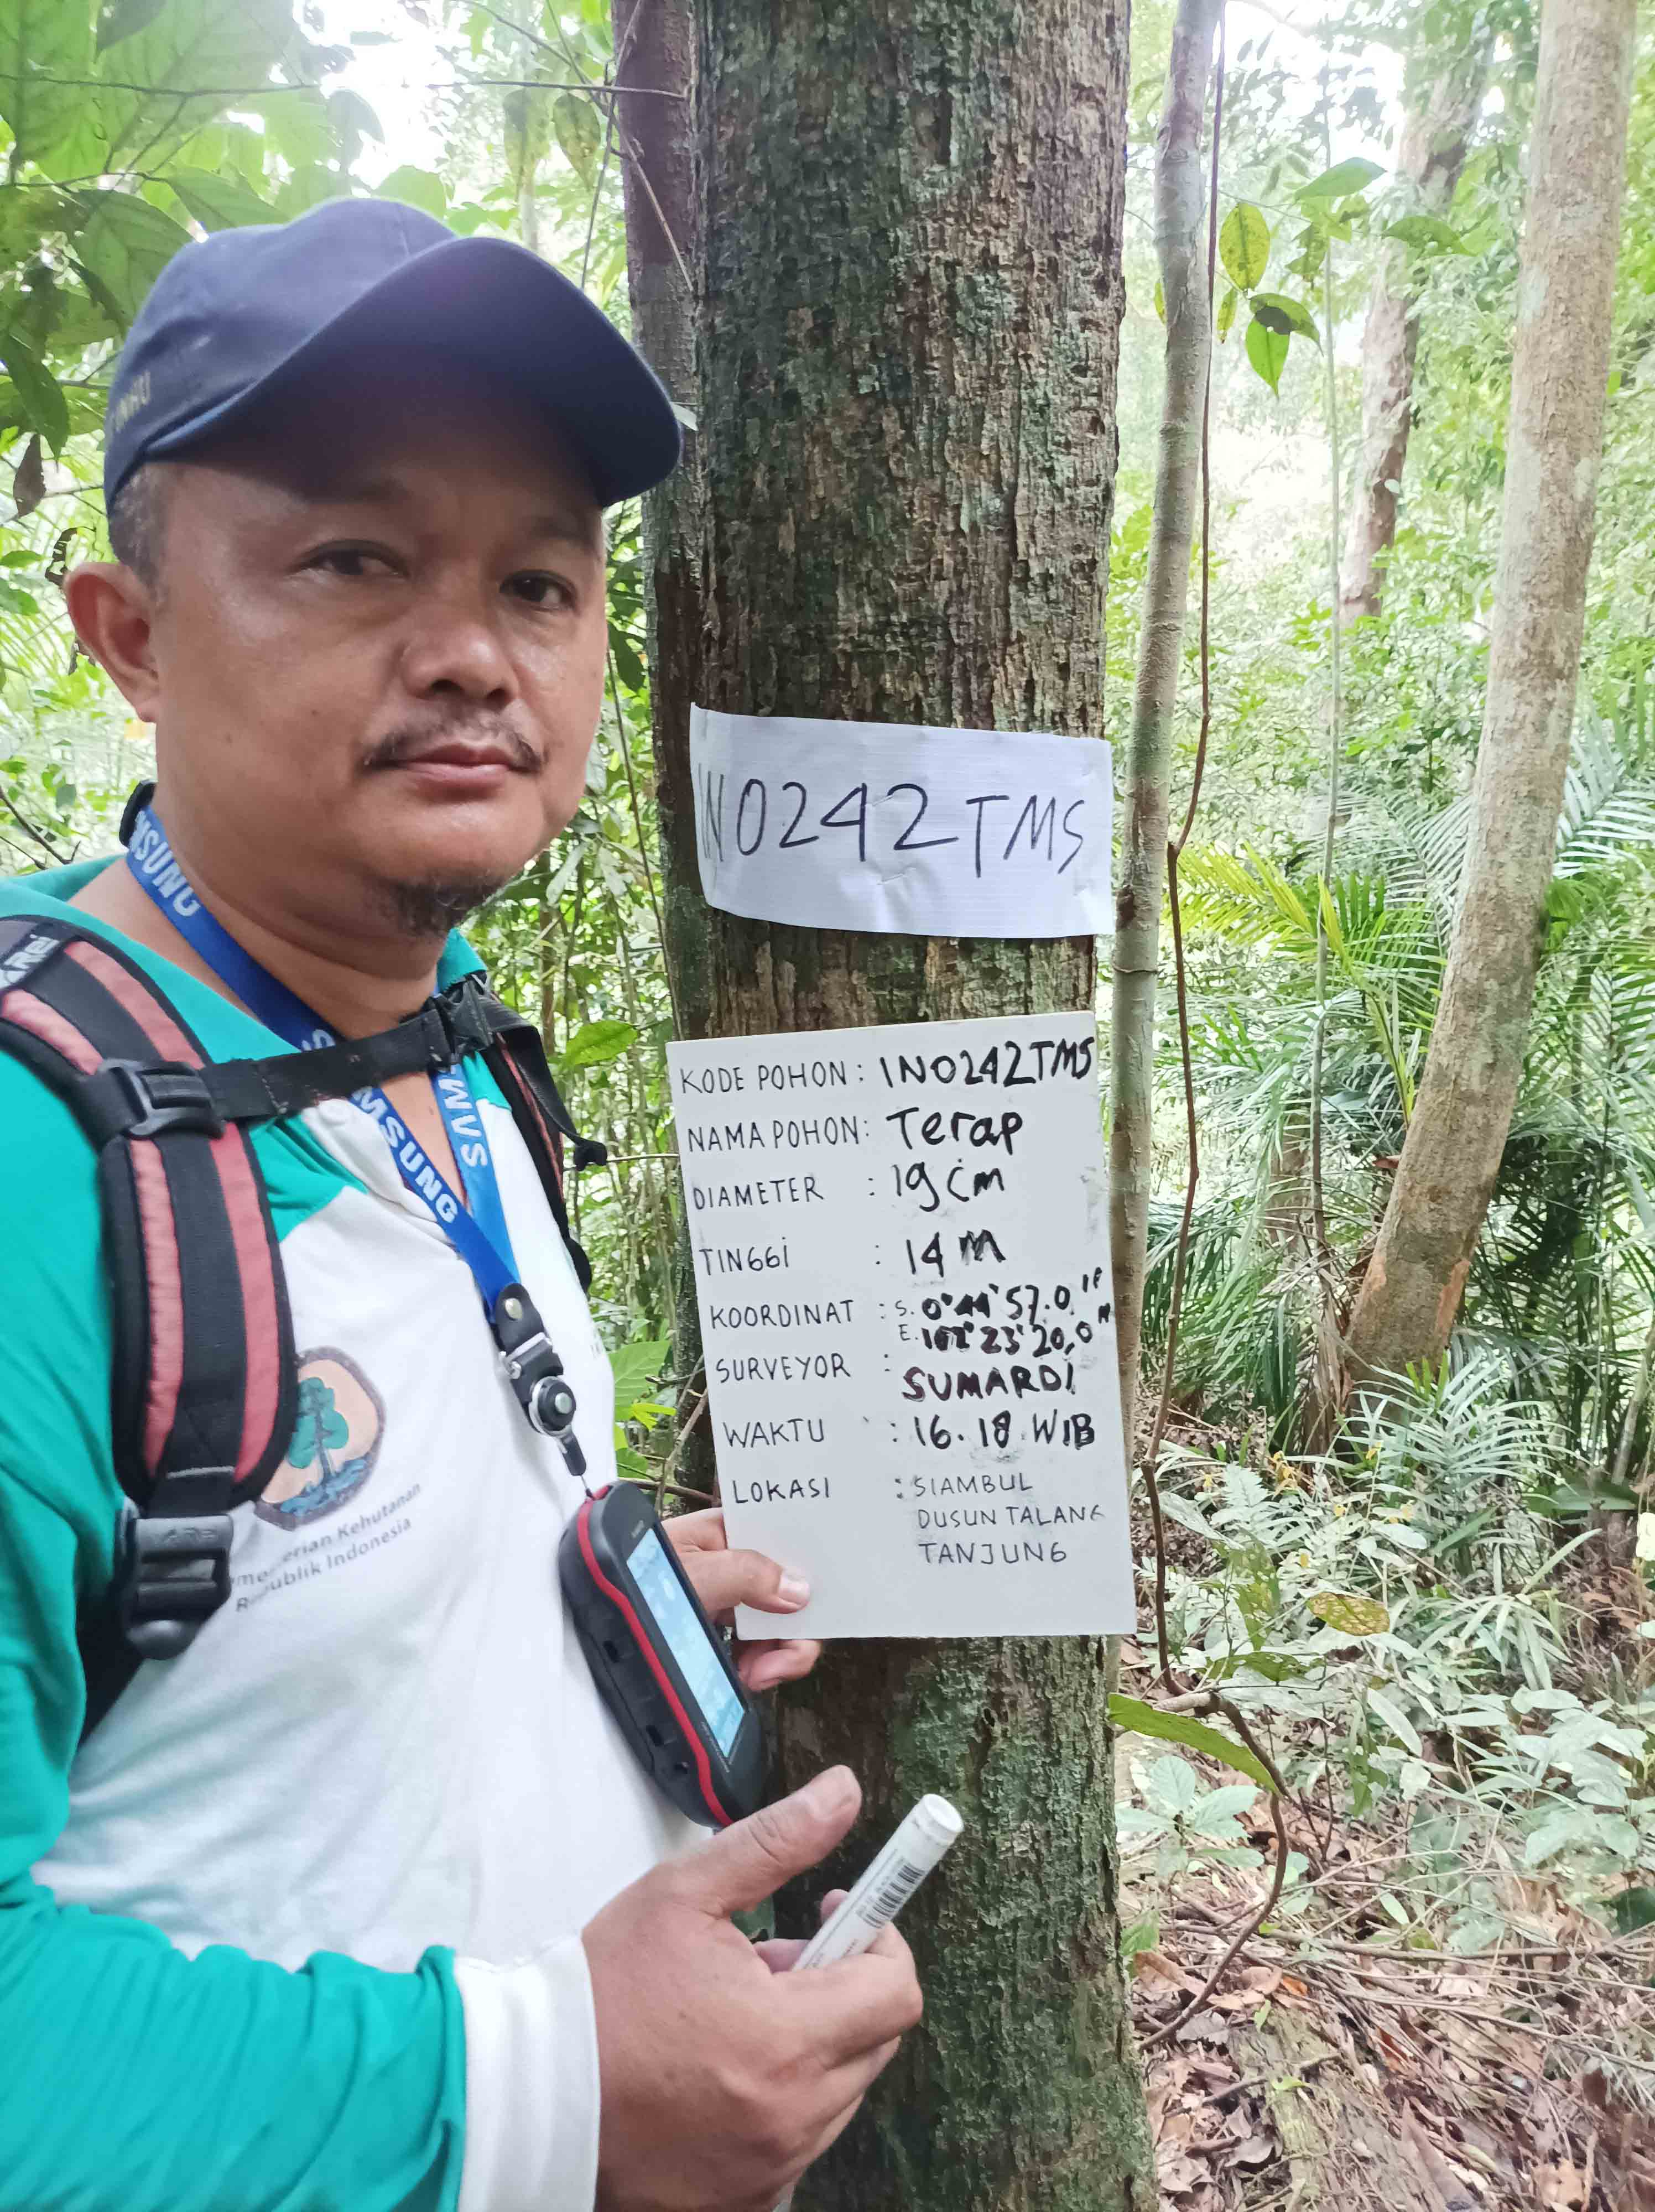 IN0242TMS
KODE POHON : IN0242TMS
NAMA POHON : Terap
DIAMETER : 19 cm
TINGGI : 14 M
KOORDINAT : S. 0°44'57.0"
E. 102°23'20,0"
SURVEYOR : SUMARDI
WAKTU : 16.18 WIB
LOKASI : SIAMBUL
DUSUN TALANG
TANJUNG
SAMSUNG
SAMSUNG
Kehutanan
Republik Indonesia